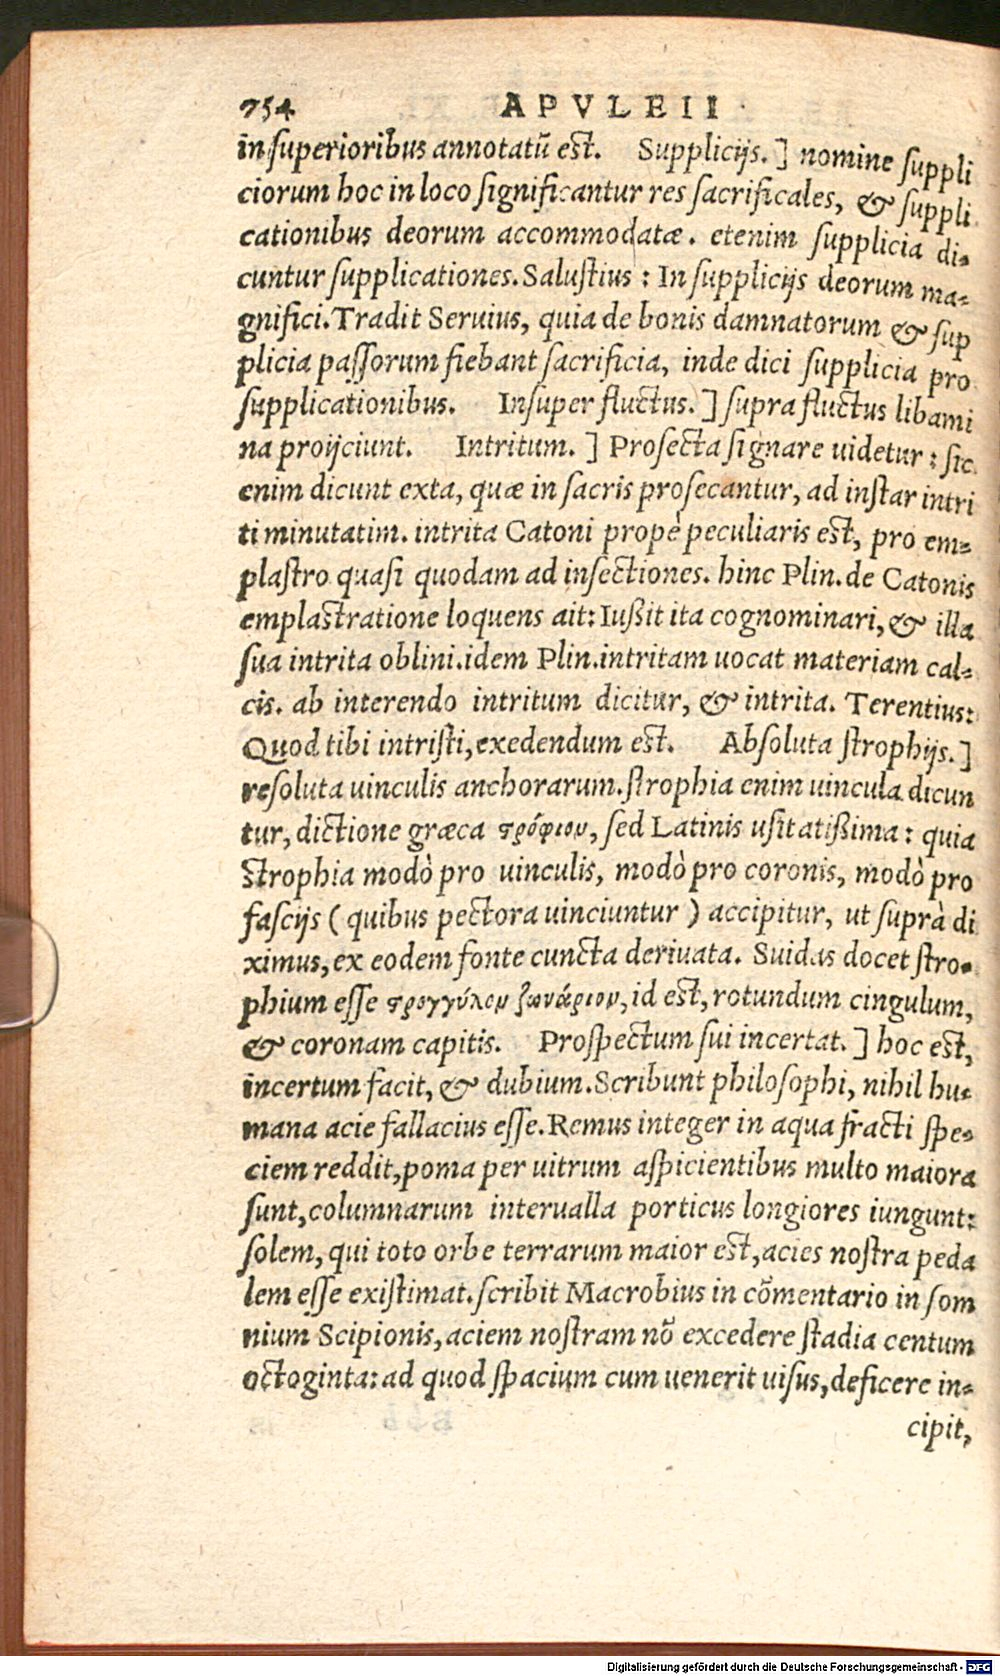 754 APVLEII
in superioribus annotatũ est. Supplicijs.] nomine suppli
ciorum hoc in loco significantur res sacrificales, & suppli
cationibus deorum accommodatæ. etenim supplicia di-
cuntur supplicationes. Salustius: In supplicijs deorum ma-
gnifici. Tradit Seruius, quia de bonis damnatorum & sup
plicia passorum fiebant sacrificia, inde dici supplicia pro
supplicationibus. Insuper fluctus.] supra fluctus libami
na proijciunt. Intritum.] Prosecta signare uidetur: sic
enim dicunt exta, quæ in sacris prosecantur, ad instar intri
ti minutatim. intrita Catoni propè peculiaris est, pro em-
plastro quasi quodam ad insectiones. hinc Plin. de Catonis
emplastratione loquens ait: Iußit ita cognominari, & illa
sua intrita oblini. idem Plin. intritam uocat materiam cal-
cis. ab interendo intritum dicitur, & intrita. Terentius:
Quod tibi intristi, exedendum est. Absoluta strophijs.]
resoluta uinculis anchorarum. strophia enim uincula dicun
tur, dictione græca στρόφιον, sed Latinis usitatißima: quia
Strophia modò pro uinculis, modò pro coronis, modò pro
fascijs (quibus pectora uinciuntur) accipitur, ut suprà di
ximus, ex eodem fonte cuncta deriuata. Suidas docet stro-
phium esse στρογγύλον ζωνάριον, id est, rotundum cingulum,
& coronam capitis. Prospectum sui incertat.] hoc est,
incertum facit, & dubium. Scribunt philosophi, nihil hu-
mana acie fallacius esse. Remus integer in aqua fracti spe-
ciem reddit, poma per uitrum aspicientibus multo maiora
sunt, columnarum interualla porticus longiores iungunt:
solem, qui toto orbe terrarum maior est, acies nostra peda
lem esse existimat. scribit Macrobius in cõmentario in som
nium Scipionis, aciem nostram nõ excedere stadia centum
octoginta: ad quod spacium cum uenerit uisus, deficere in-
cipit,
Digitalisierung gefördert durch die Deutsche Forschungsgemeinschaft - DFG